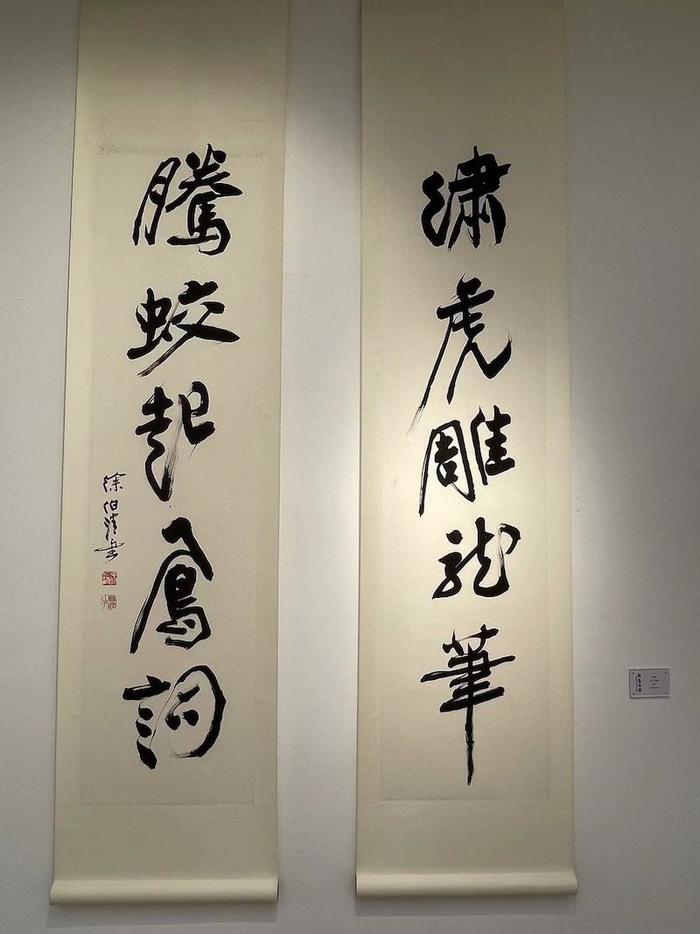 繡虎雕龍筆
騰蛟起鳳詞
徐伯清書